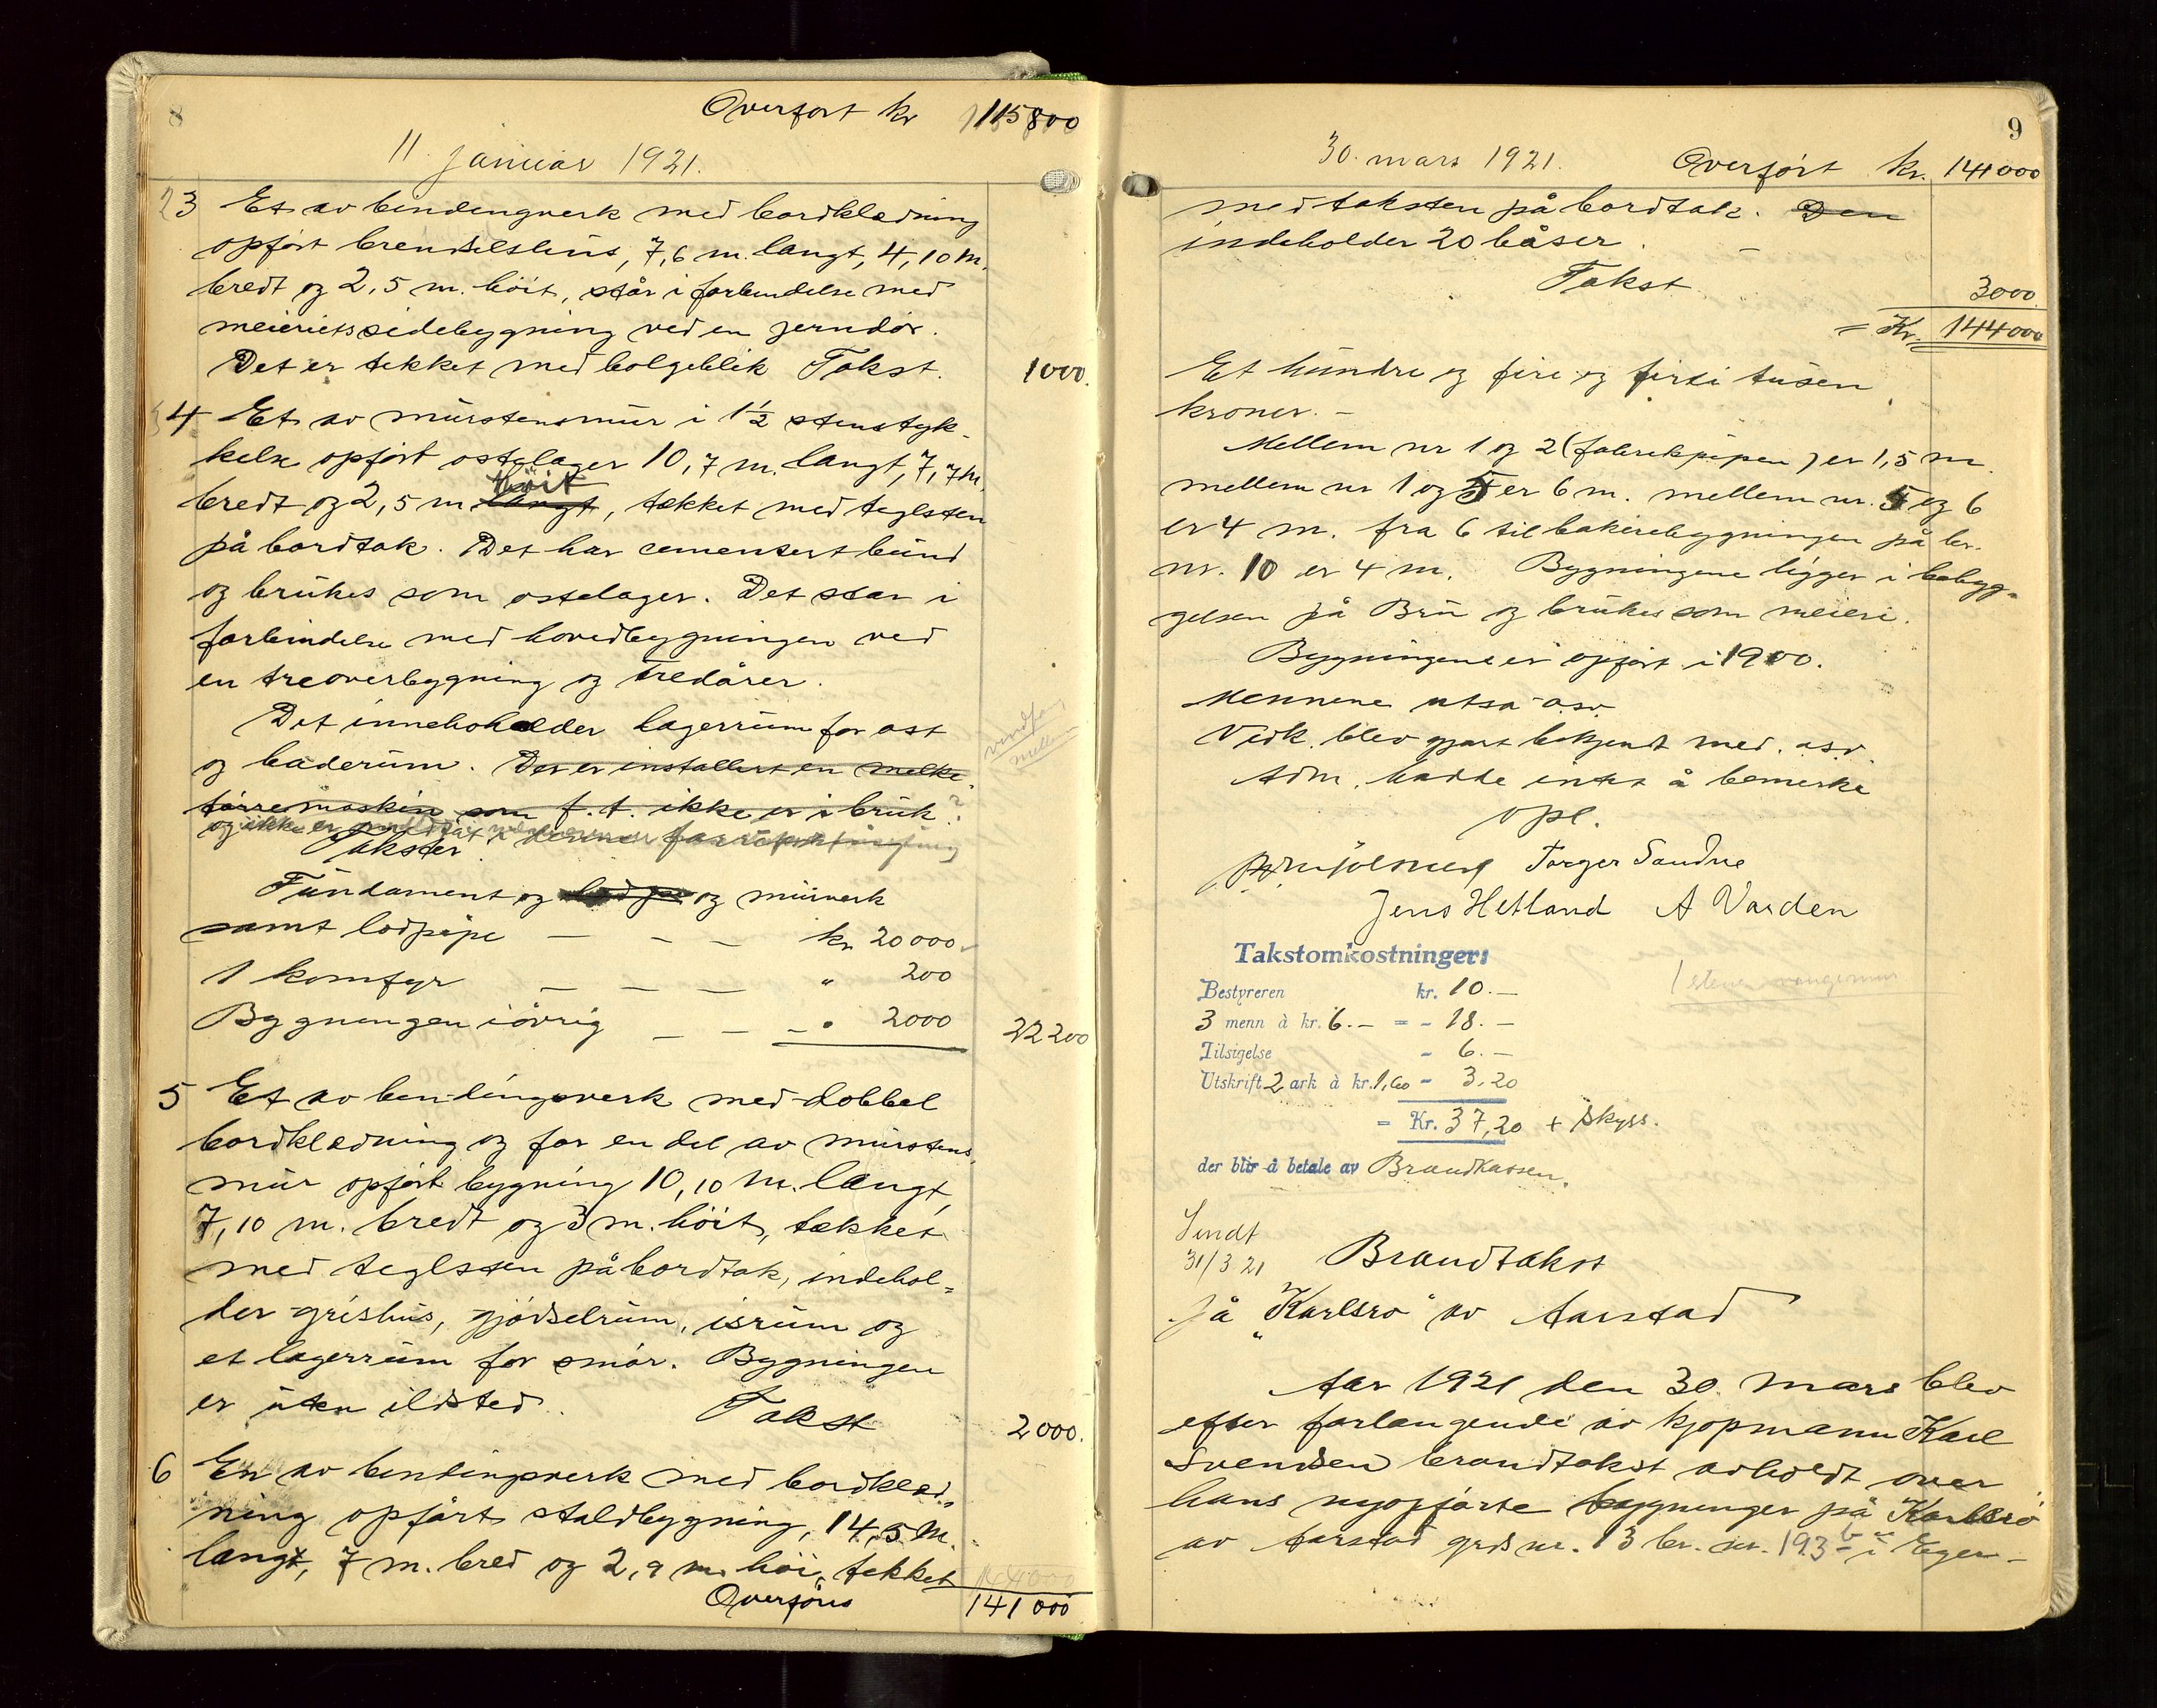 8
Overført kr 115800
11. januar 1921.
3 Et av bindingverk med bordklædning
opført brendselshus, 7,6 m. langt, 4,10 m.
bredt og 2,5 m. höit, står i forbindelse med
meieriets sidebygning ved en jerndör.
Det er tekket med bølgeblik Takst. 1000.
4 Et av murstensmur i 1½ stenstyk-
kelse opfört ostelager 10,7 m. langt, 7,7 m.
bredt og 2,5 m. langt höit, tekket med teglsten
på bordtak. Det har cementert bund
og brukes som ostelager. Det star i
forbindelse med hovedbygningen ved
en treoverbygning og tredörer.
Det inneholder lagerrum for ost
og baderum. Der er installert en melke
törremaskin som f.t. ikke er i bruk
og ikke er
Takster
vindfang
mellem
Fundament og og murverk
samt lodpipe — — — kr 20000
1 komfyr — — — " 200
Bygningen iövrig — — — " 2000 22200
5 Et av bindingsverk med dobbel
bordklædning og for en del av murstens
mur opfört bygning 10,10 m. langt,
7,10 m. bredt og 3 m. höit, tekket
med teglsten på bordtak, indehol-
der grishus, gjödselrum, isrum og
et lagerrum for smör. Bygningen
er uten ildsted. Takst 2000.
6 En av bindingsverk med bordklæd-
ning opfört staldbygning, 14,5 m.
langt, 7 m. bred og 2,9 m. höi, tekket
Overføres 141000
9
30. mars 1921. Overført kr. 141000
med taksten på bordtak. Den
indeholder 20 båser.
Takst 3000
= Kr. 144000
Et hundre og fire og firti tusen
kroner. —
Mellem nr 1 og 2 (fabrikpipen) er 1,5 m.
mellem nr 1 og 5 er 6 m. mellem nr. 5 og 6
er 4 m. fra 6 til bakeribygningen på br.
nr. 10 er 4 m. Bygningene ligger i bebyg-
gelsen på Bru og brukes som meieri.
Bygningene er opfört i 1900.
Mennene utsa osv.
Vedk. blev gjort bekjendt med. osv.
Adm. hadde intet å bemerke
opl.
Torger Sandve
Jens Hetland A Varden
Takstomkostninger:
Bestyreren kr. 10.—
3 menn à kr. 6.— = - 18.—
Tilsigelse - 6.—
Utskrift 2 ark à kr. 1,60 - 3,20
= Kr. 37,20 + skyss.
der blir å betale av Brandkassen.
Sendt
31/3 21 Brandtakst
på "Karlsro" av Aarstad
Aar 1921 den 30. mars blev
efter forlangende av kjøpmann Karl
Svendsen brandtakst avholdt over
hans nyopførte bygninger på Karlsro
av Aarstad grds nr. 13 br. nr. 193 b i Eger-